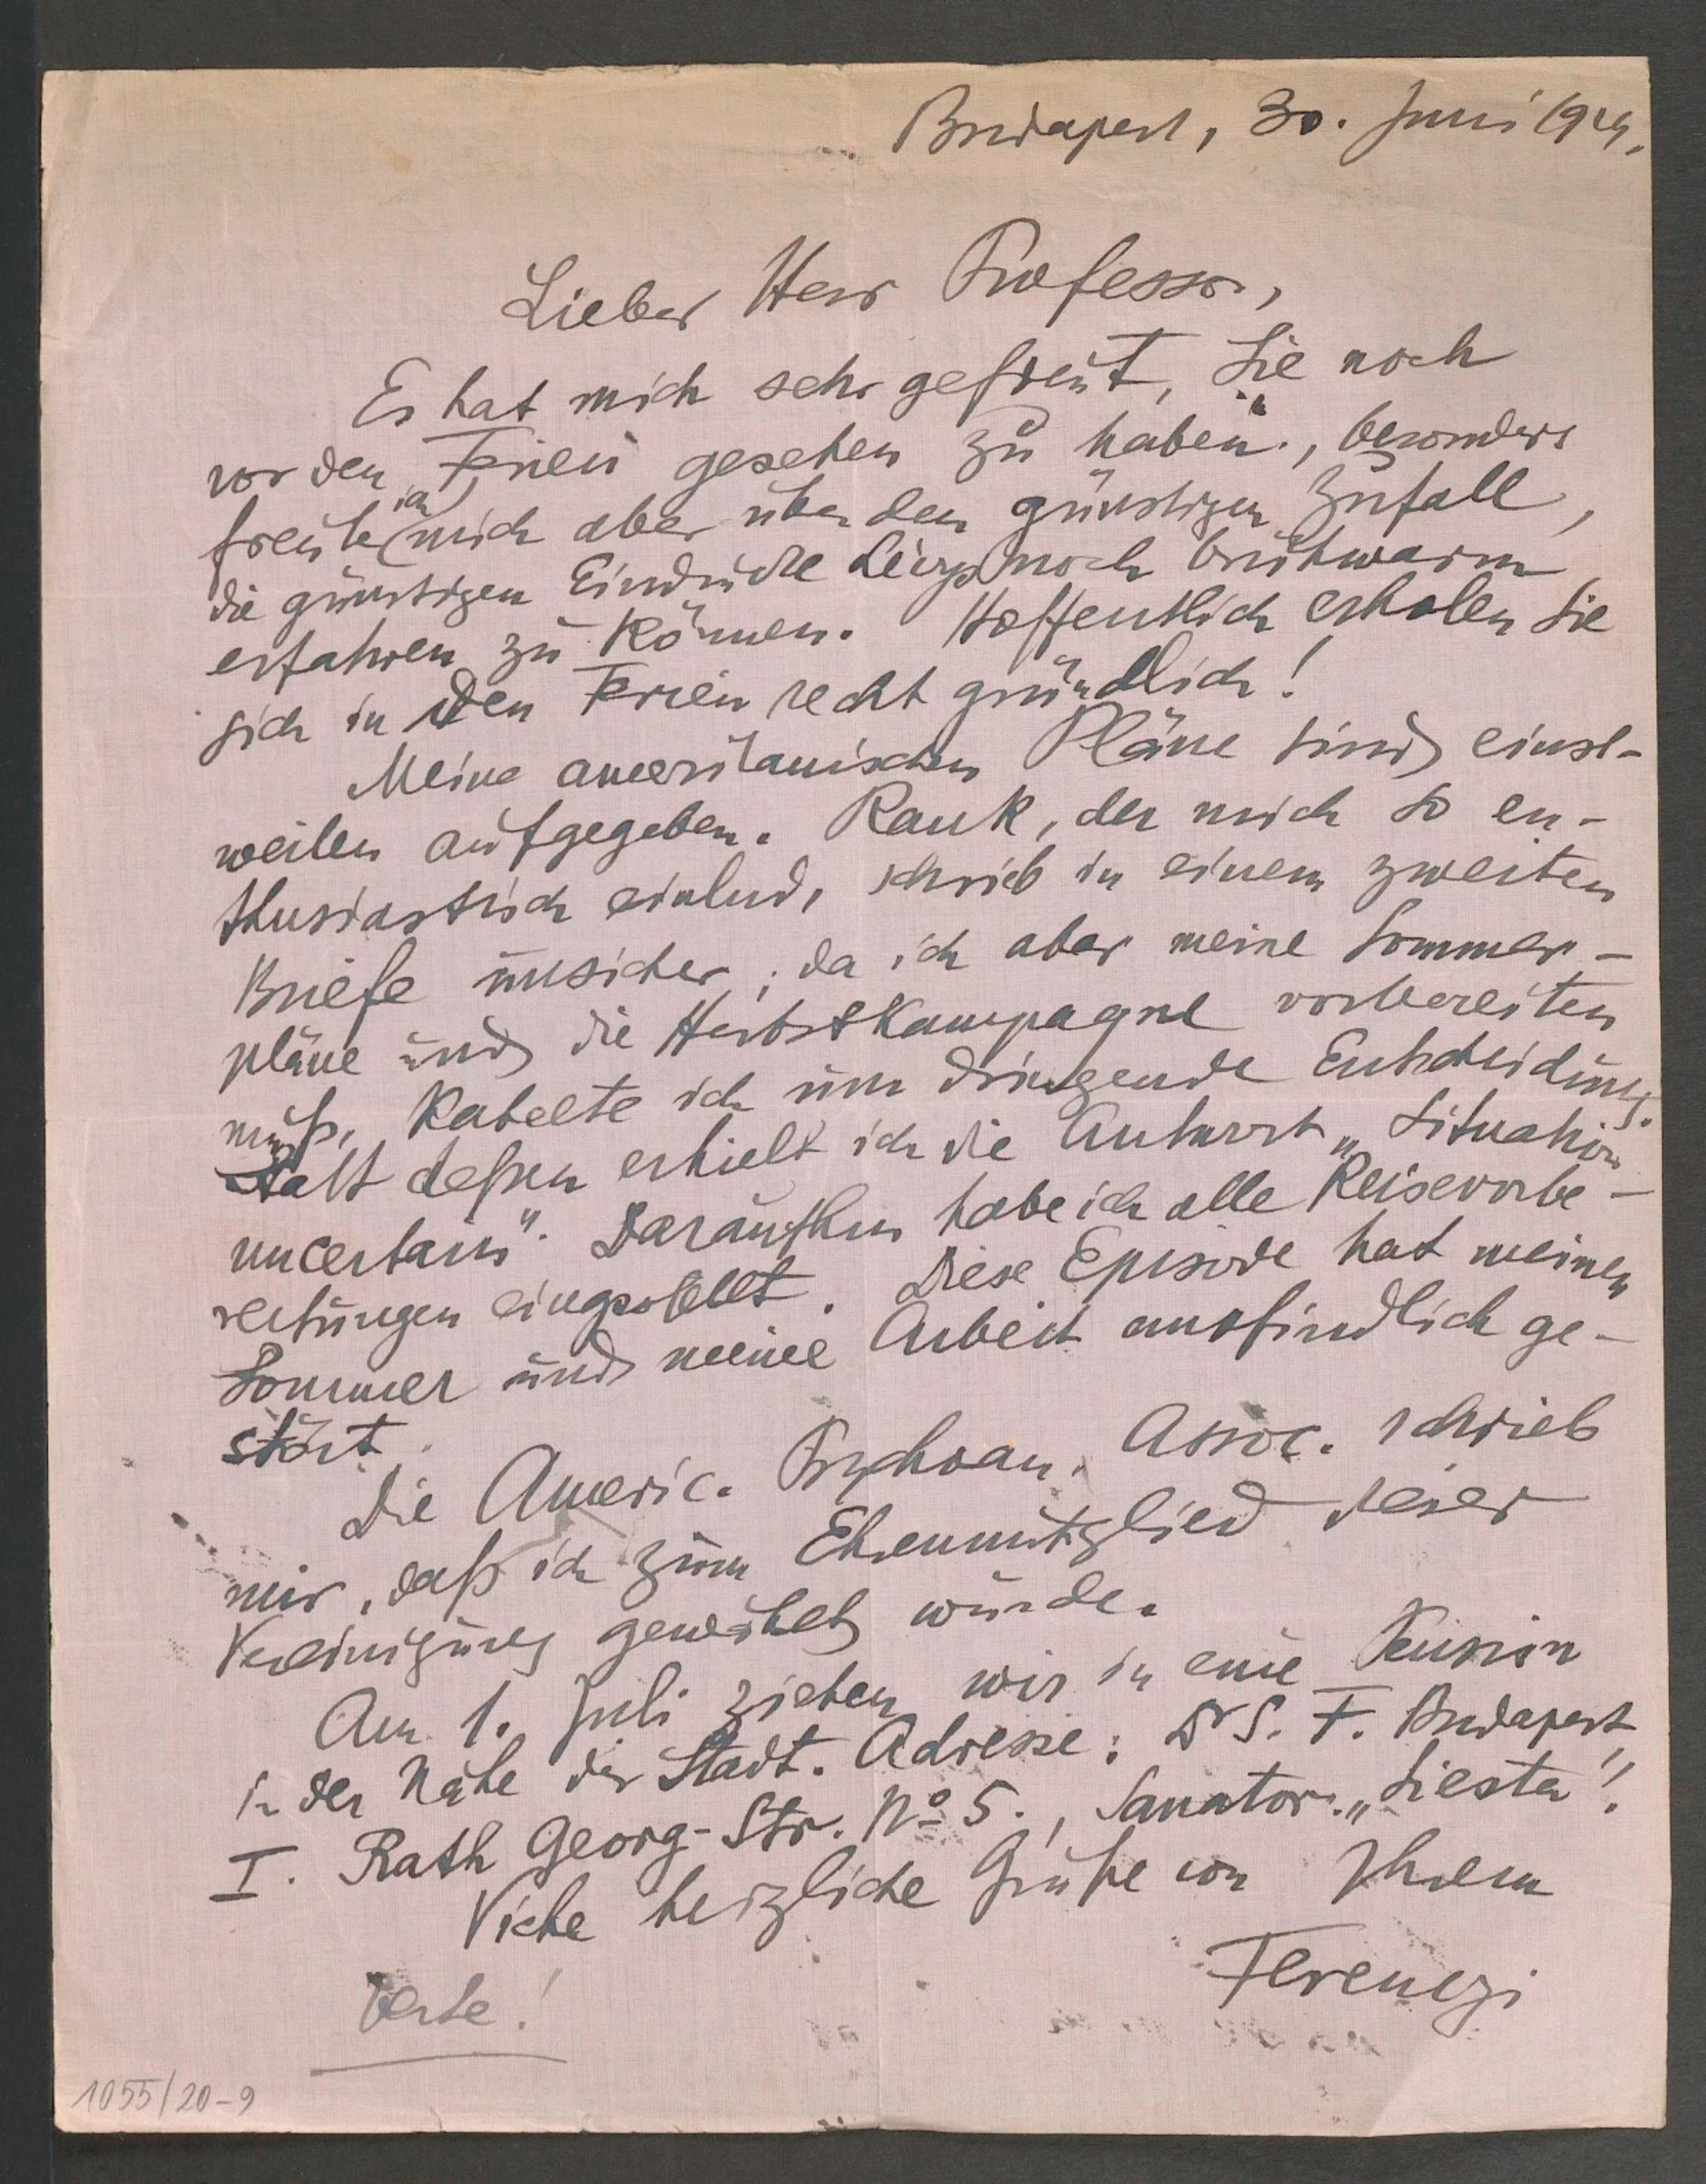 Budapest, 30. Juni 1924.
Lieber Herr Professor,
Es hat mich sehr gefreut, Sie noch
vor den Ferien gesehen zu haben, besonders
freute ich mich aber über den günstigen Zufall,
die günstigen Eindrücke noch brühwarm
erfahren zu können. Hoffentlich erholen Sie
sich in den Ferien recht gründlich!
Meine amerikanischen Pläne sind einst-
weilen aufgegeben. Rank, der mich so en-
thusiastisch einlud, schrieb in einem zweiten
Briefe unsicher; da ich aber meine Sommer-
pläne und die Herbstkampagne vorbereiten
muß, kabelte ich um dringende Entscheidung.
Statt deßen erhielt ich die Antwort „Situation
uncertain“. Daraufhin habe ich alle Reisevorbe-
reitungen eingestellt. Diese Episode hat meinen
Sommer und meine Arbeit empfindlich ge-
stört.
Die Americ. Psychoan. Assoc. schrieb
mir, daß ich zum Ehrenmitglied dieser
Vereinigung gewählt wurde.
Am 1. Juli ziehen wir in eine Pension
in der Nähe der Stadt. Adresse: Dr S. F. Budapest,
I. Rath Georg-Str. No 5., Sanator. „Siesta“!
Viele herzliche Grüße von Ihrem
Ferenczi
Verte!
1055/20-9